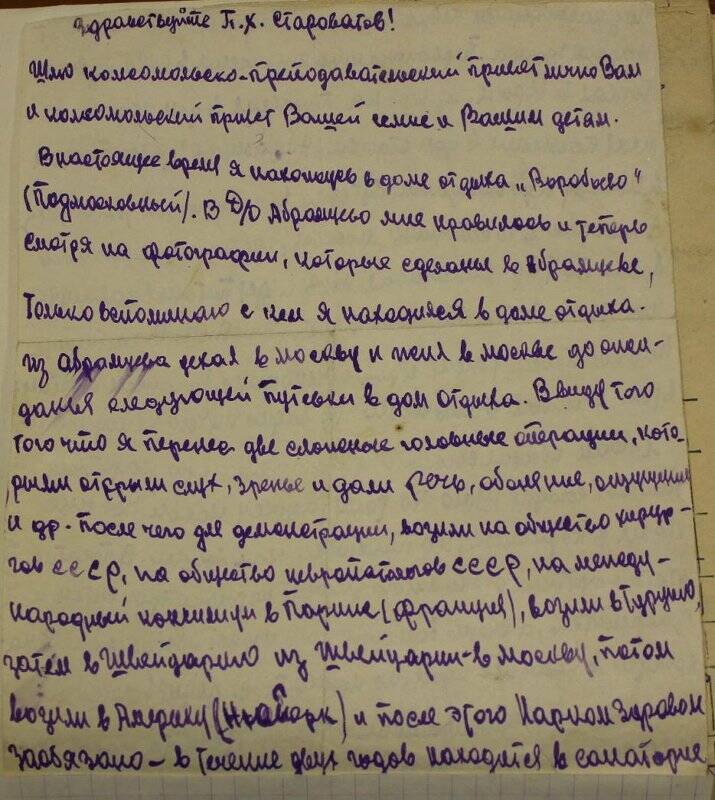 Здравствуйте П.Х. Староватов!
Шлю комсомольско-преподавательский привет лично Вам
и комсомольский привет Вашей семье и Вашим детям.
В настоящее время я нахожусь в доме отдыха „Воробьево"
(Подмосковный). В Д/О Абрамцево мне нравилось и теперь
смотря на фотографии, которые сделаны в Абрамцеве,
только вспоминаю с кем я находился в доме отдыха.
из Абрамцева уехал в москву и жил в москве до ожи-
дания следующей путевки в дом отдыха. Ввиду того
того что я перенес две сложные головные операции, кото-
рыми открыли слух, зренье и дали речь, обоняние, ощущения
и др. после чего для демонстрации, возили на общество хирур-
гов СССР, на общество невропатологов СССР, на между-
народный консилиум в Париж (франция), возили в Турцию,
затем в Швейцарию из Швейцарии-в москву, потом
возили в Америку (Нью-Йорк) и после этого Наркомздравом
заобязано - в течение двух годов находится в санатории